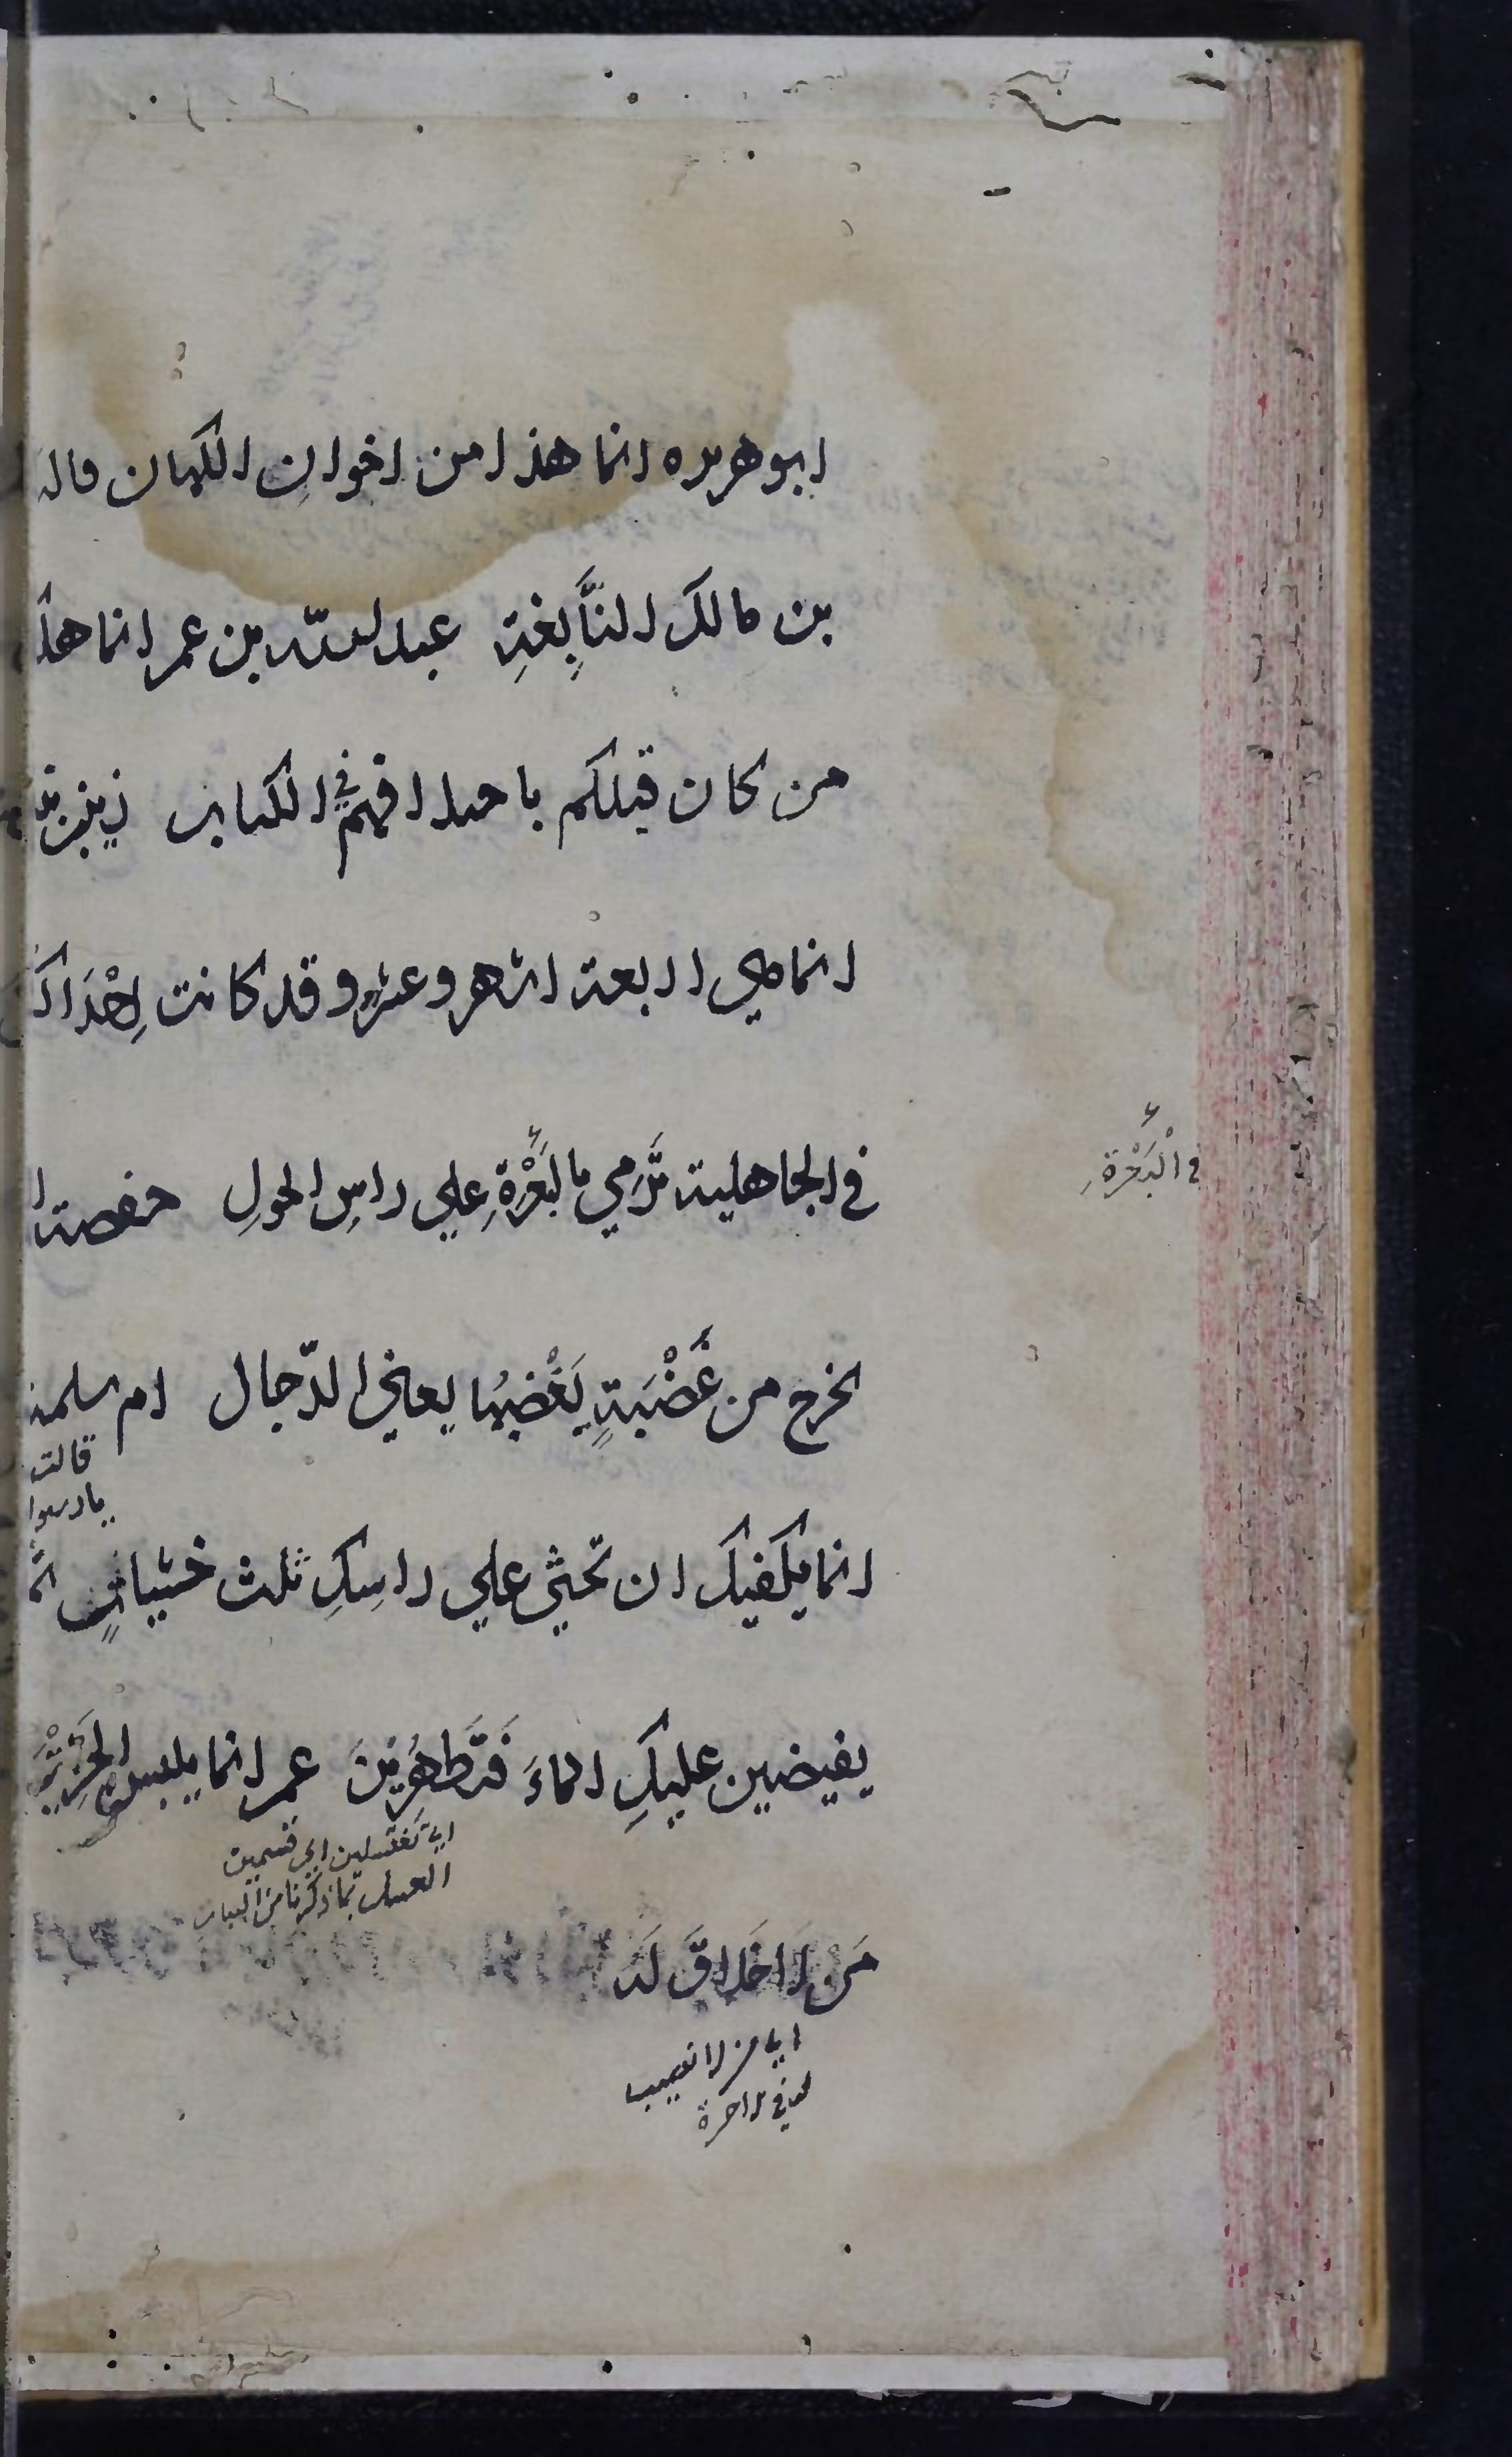 ابو هريره انما هذا من اخوان الكهان قاله
بن مالك النَّابِغةِ عبد الله بن عمر انما هلك
من كان قبلكم باختلافهم في الكتاب زينب
انما هي اربعة اشهر وعشر وقد كانت اِحْدَاكن
في الجاهلية تَرْمي بالبَعْرَةِ علي راسِ الحولِ حفصة
في الْبَعَرَةِ
يخرج من غَضْبَةٍ يَغْضَبُها يعني الدّجال ام سلمة
قالت
يا رسول
انما يكفيكِ ان تحثي علي راسِكِ ثلث حثياتٍ
تفيضين عليكِ الماءَ فَتَطْهُرِيْنَ عمر انما يلبس الحَرِيْرَ
اي تغتسلين اي
الغسل بما ذكرنا من البيان
مَن لا خَلاقَ لَه
اي من لا نصيب
له في الاخرة